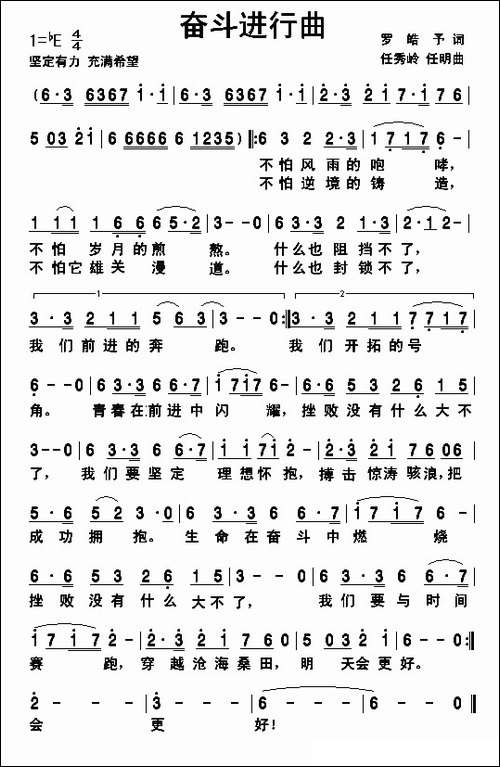 奋斗进行曲
1=♭E 4/4
罗 皓 予 词
坚定有力 充满希望
任秀岭 任明曲
(6·3 6367 i·i | 6·3 6367 i·i | 2·3 2i7i·i 76
5 03 2i | 6 6666 6 1235):‖: 6 3 2 2·3 | 1 717 6 - |
不怕风雨的咆 哮，
不怕逆境的铸 造，
1 11 1 6 6 6 5·2 | 3--0 | 3·3 3 2 1 3·3 | 2·1 2- |
不怕 岁月的煎 熬。 什么也 阻挡不了，
不怕它雄关 漫 道。 什么也 封锁不了，
1 2
3·3 2 1 1 5 6 3 | 3--0 :‖ 3·3 3 2 1 1 7 7 1 7 |
我们前进的奔 跑。 我们开拓的号
6--0 | 6·3 6 3 6 6·7 | i 7i7 6·3 | 5 3 2 6 1 5 |
角。 青春在前进中闪 耀，挫败没有什么大不
3--0 | 6 3·3 6 6·7 | i i7i 2- | 2·3 2i 7606 |
了， 我们要坚定 理想怀抱，搏击惊涛骇浪，把
5·6 5 2 3--0 | 6·3 6 3 6 6·7 | i 7i7 6- |
成功拥抱。生命在奋斗中燃 烧
6·6 5 3 2 6 1 5 | 3--0 | 3·2 1 2 3 6·7 |
挫败没有什么大不了， 我们要与时间
i 7i7 2- | 2·3 2i 7 6 | 6 3 2 i 2 |
赛 跑，穿越沧海桑田，明 天会更好。
2--- | 3--- | 6--- | 6--0 ‖
会 更 好！